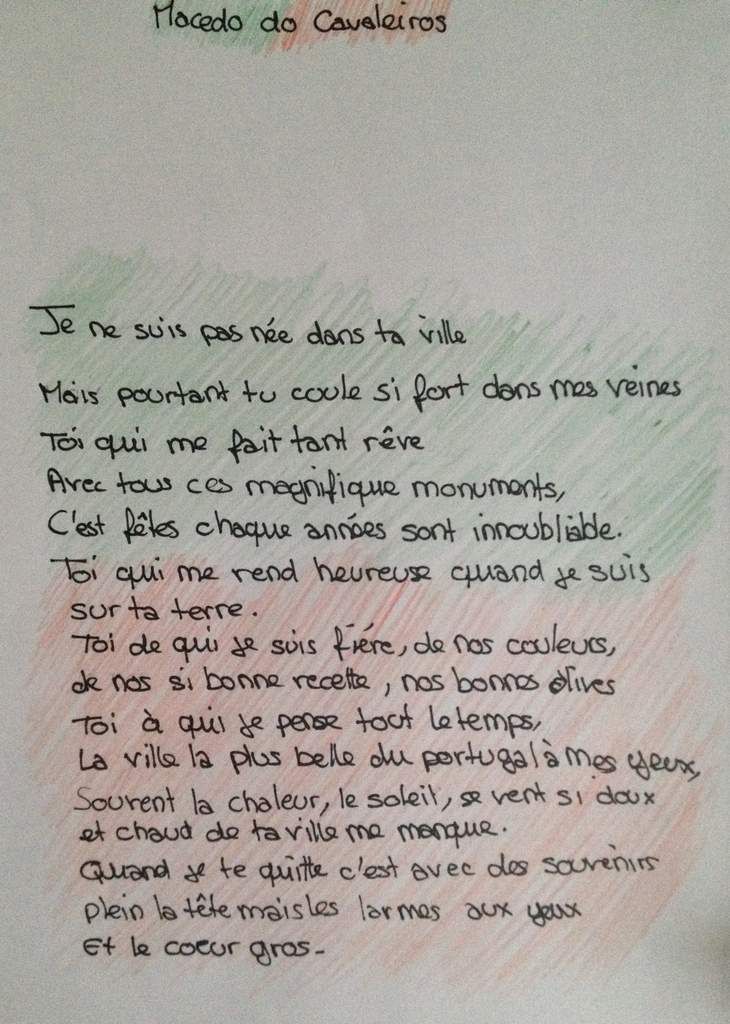 Macedo do Cavaleiros
Je ne suis pas née dans ta ville
Mais pourtant tu coule si fort dans mes veines
Toi qui me fait tant rêve
Avec tous ces magnifique monuments,
C'est fêtes chaque années sont innoubliable.
Toi qui me rend heureuse quand je suis
sur ta terre.
Toi de qui je suis fiére, de nos couleurs,
de nos si bonne recette, nos bonnes olives
Toi à qui je pense tout le temps,
La ville la plus belle du portugal à mes yeux,
Souvent la chaleur, le soleil, se vent si doux
et chaud de ta ville me manque.
Quand je te quitte c'est avec des souvenirs
plein la tête mais les larmes aux yeux
Et le coeur gros-